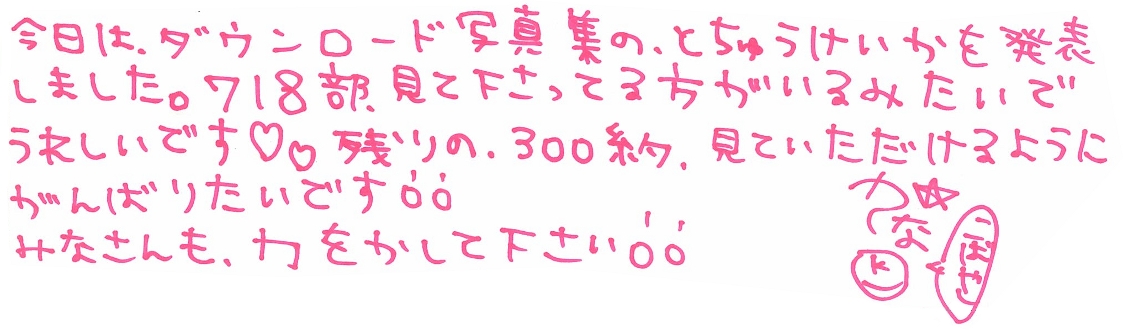 今日は、ダウンロード写真集の、とちゅうけいかを発表
しました。718部、見て下さってる方がいるみたいで
うれしいです♡♡残りの、300約、見ていただけるように
がんばりたいです!!
みなさんも、力をかして下さい!!
かな☆
こばやし